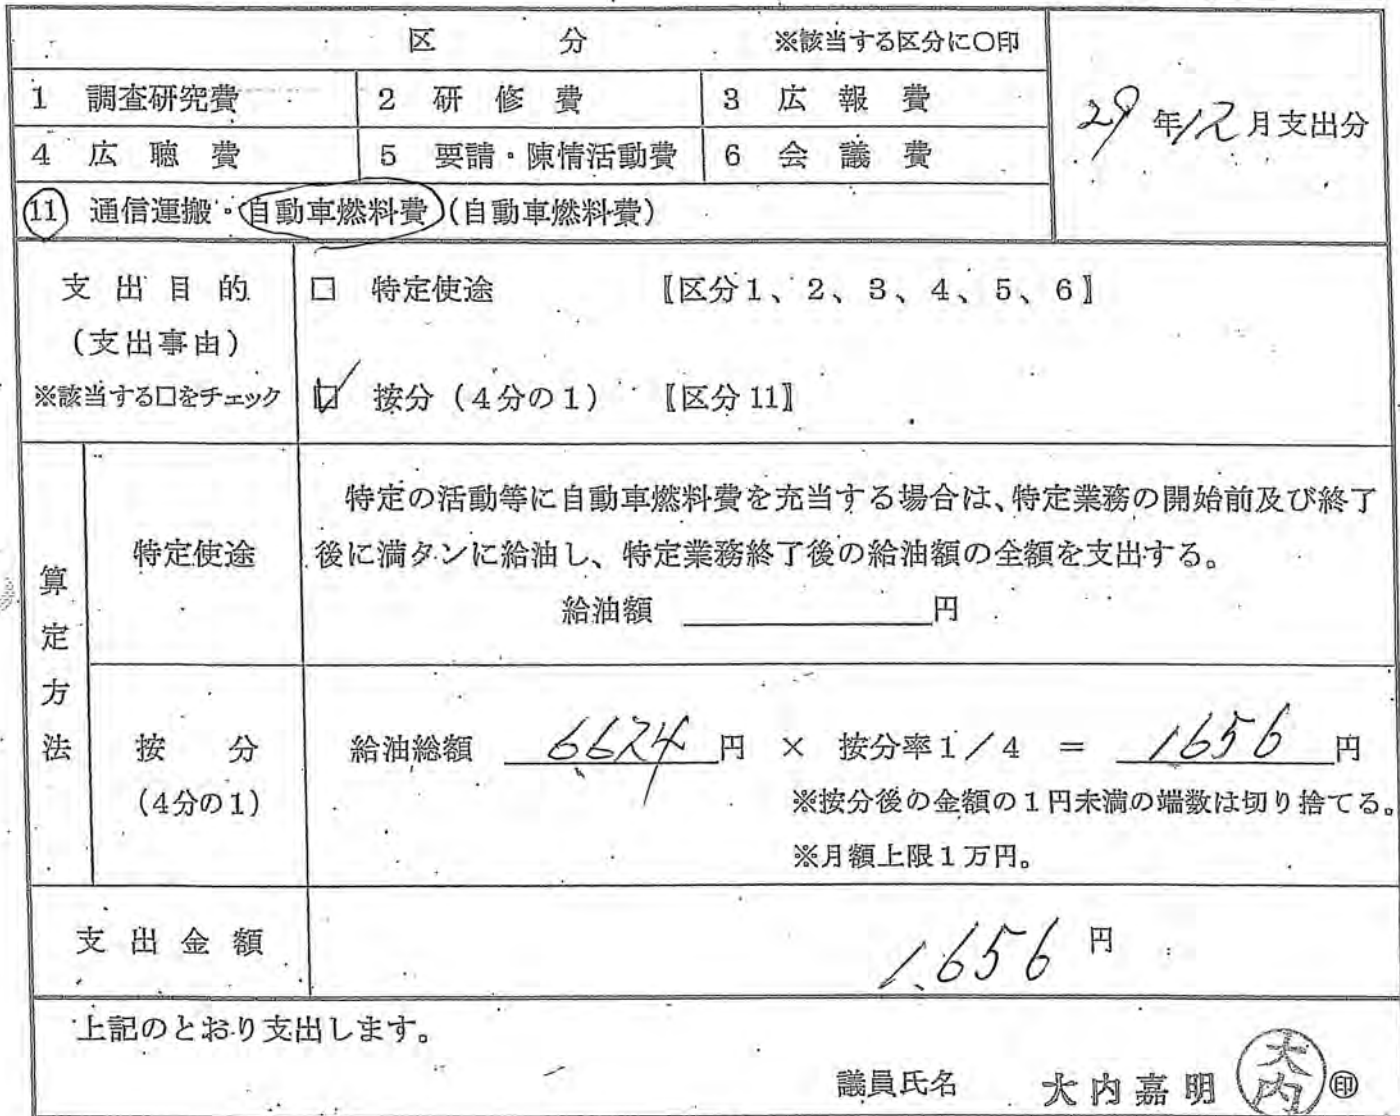 区 分 ※該当する区分に○印
1 調査研究費 2 研 修 費 3 広 報 費
29年12月支出分
4 広 聴 費 5 要請・陳情活動費 6 会 議 費
11 通信運搬・自動車燃料費(自動車燃料費)
支 出 目 的
(支出事由)
※該当する口をチェック
□ 特定使途 〚区分1、2、3、4、5、6〛
☑ 按分(4分の1) 〚区分11〛
算定方法
特定使途
特定の活動等に自動車燃料費を充当する場合は、特定業務の開始前及び終了
後に満タンに給油し、特定業務終了後の給油額の全額を支出する。
給油額 円
按 分
(4分の1)
給油総額 6624円 × 按分率1/4 = 1656円
※按分後の金額の1円未満の端数は切り捨てる。
※月額上限1万円。
支 出 金 額
1,656円
上記のとおり支出します。
議員氏名 大内嘉明 大内 ㊞